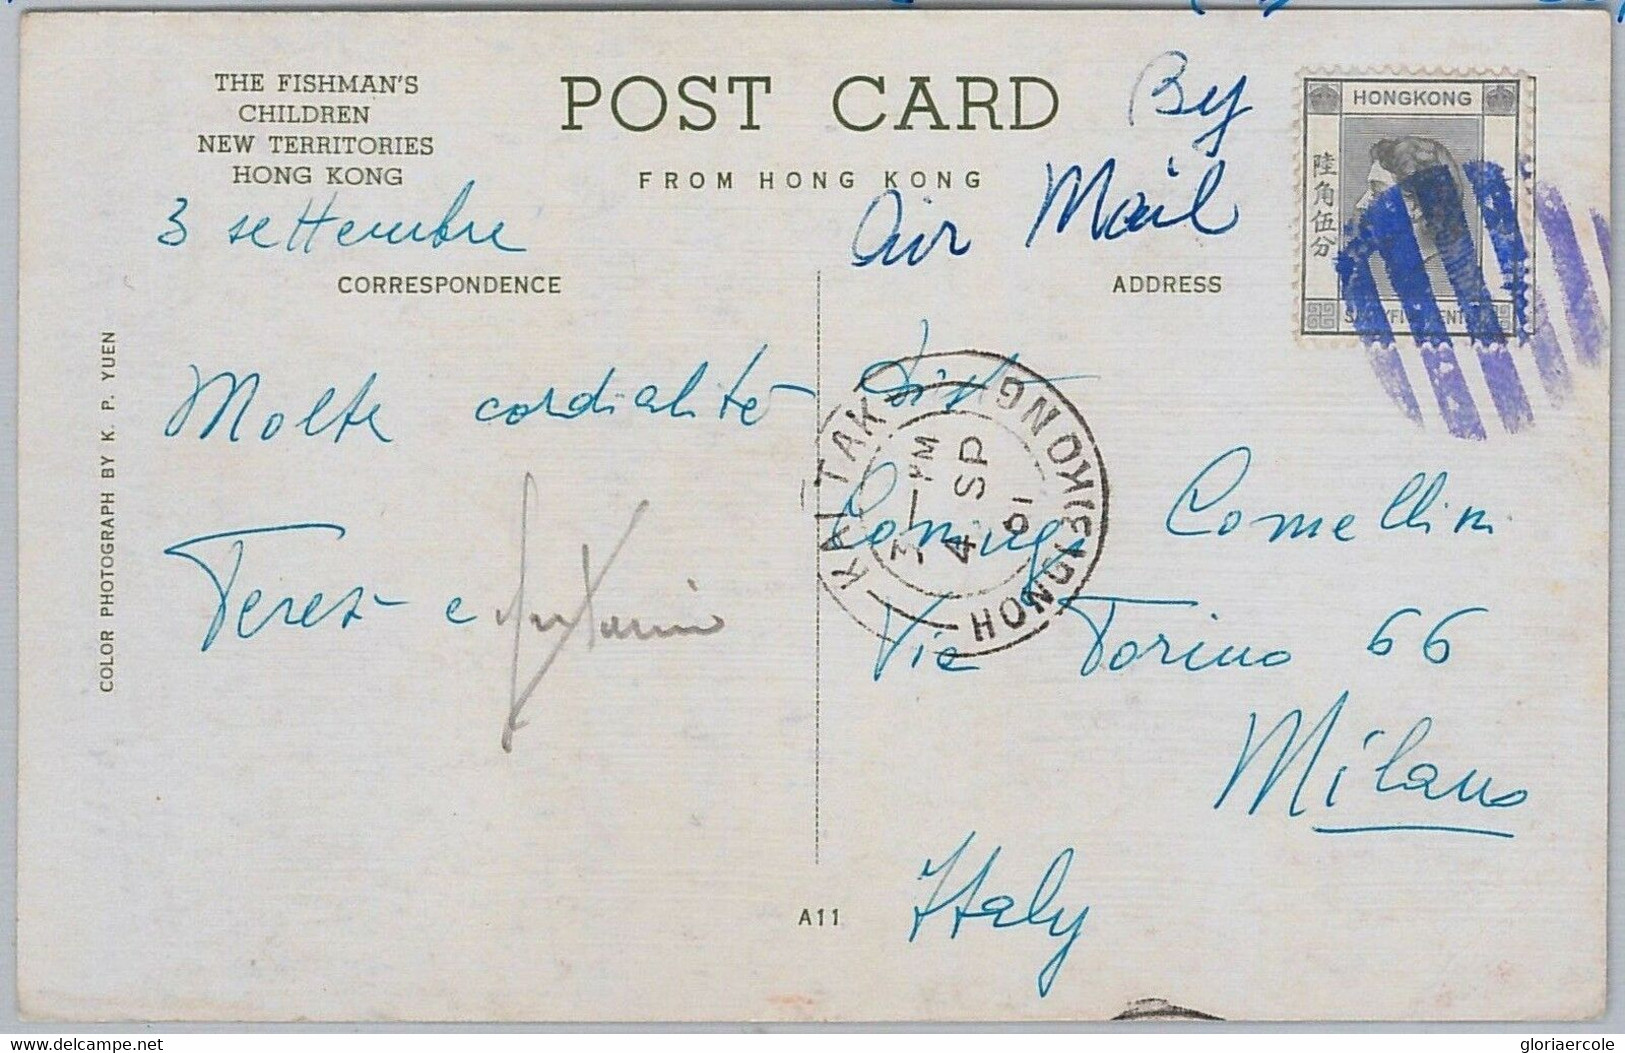 THE FISHMAN'S
CHILDREN
NEW TERRITORIES
HONG KONG
POST CARD
FROM HONG KONG
By
Air Mail
HONGKONG
陸角伍分
3 settembre
CORRESPONDENCE
ADDRESS
COLOR PHOTOGRAPH BY K. P. YUEN
Molte cordialità
Teresa e
KAI TAK
HONG KONG
3 — PM
4 SP
61
Comellini
Via Torino 66
Milano
Italy
A11
gloriaercole